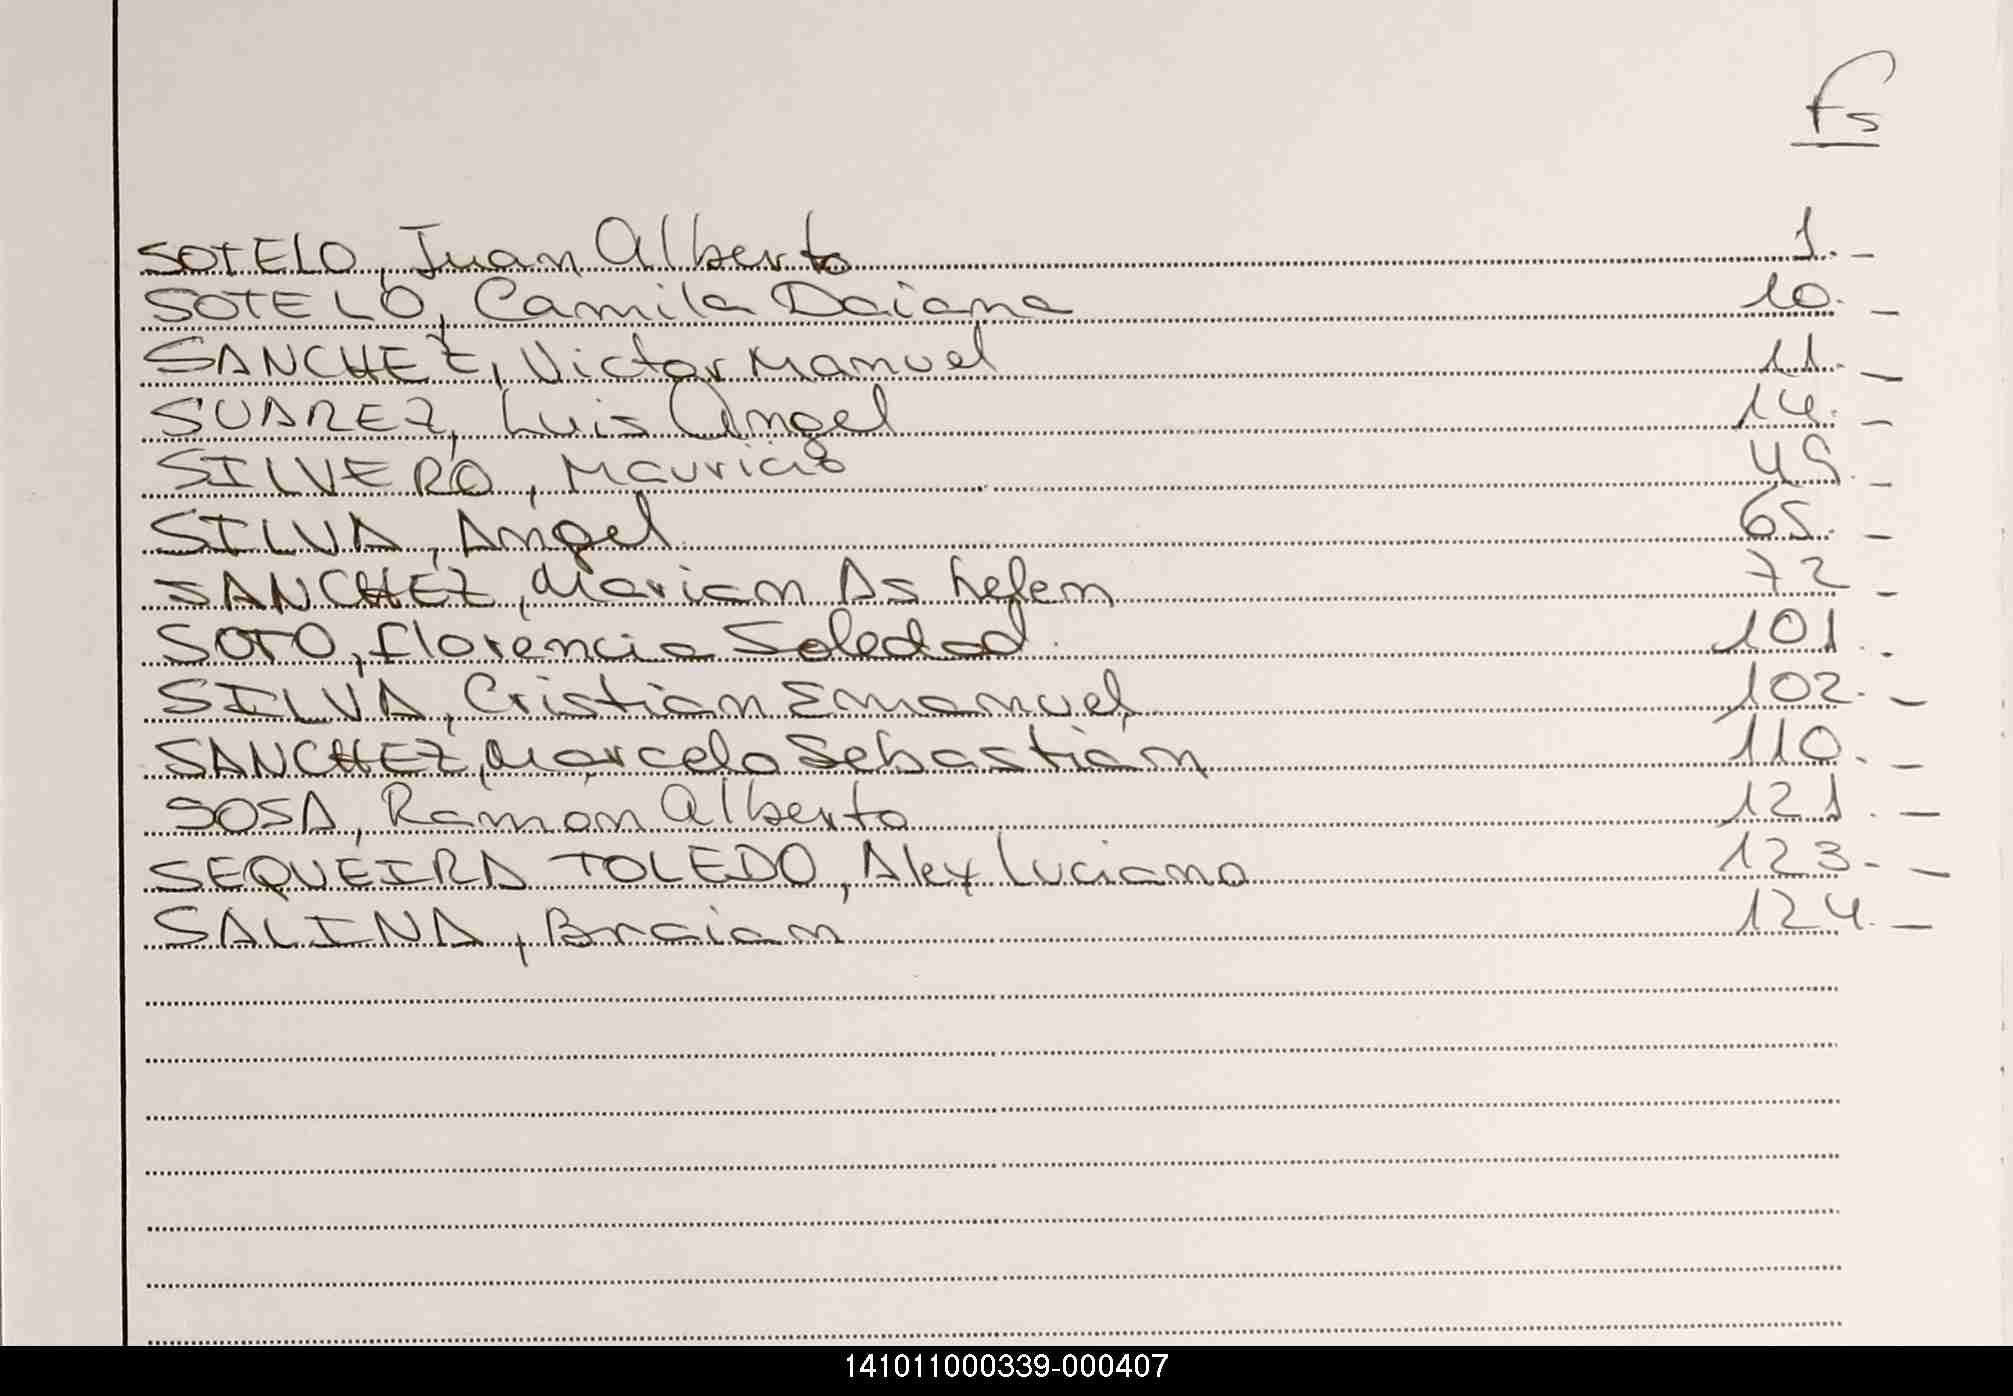 fs
SOTELO, Juan Alberto 1.-
SOTELO, Camila Daiana 10.-
SANCHEZ, Victor Manuel 11.-
SUAREZ, Luis Angel 14.-
SILVERO, Mauricio 49.-
SILVA, Angel 65.-
SANCHEZ, Mariam As 72.-
SOTO, Florencia Soledad 101.-
SILVA, Cristian Emanuel 102.-
SANCHEZ, Marcelo Sebastián 110.-
SOSA, Ramon Alberto 121.-
SEQUEIRA TOLEDO, Alex Luciano 123.-
SALINA, Braian 124.-
141011000339-000407